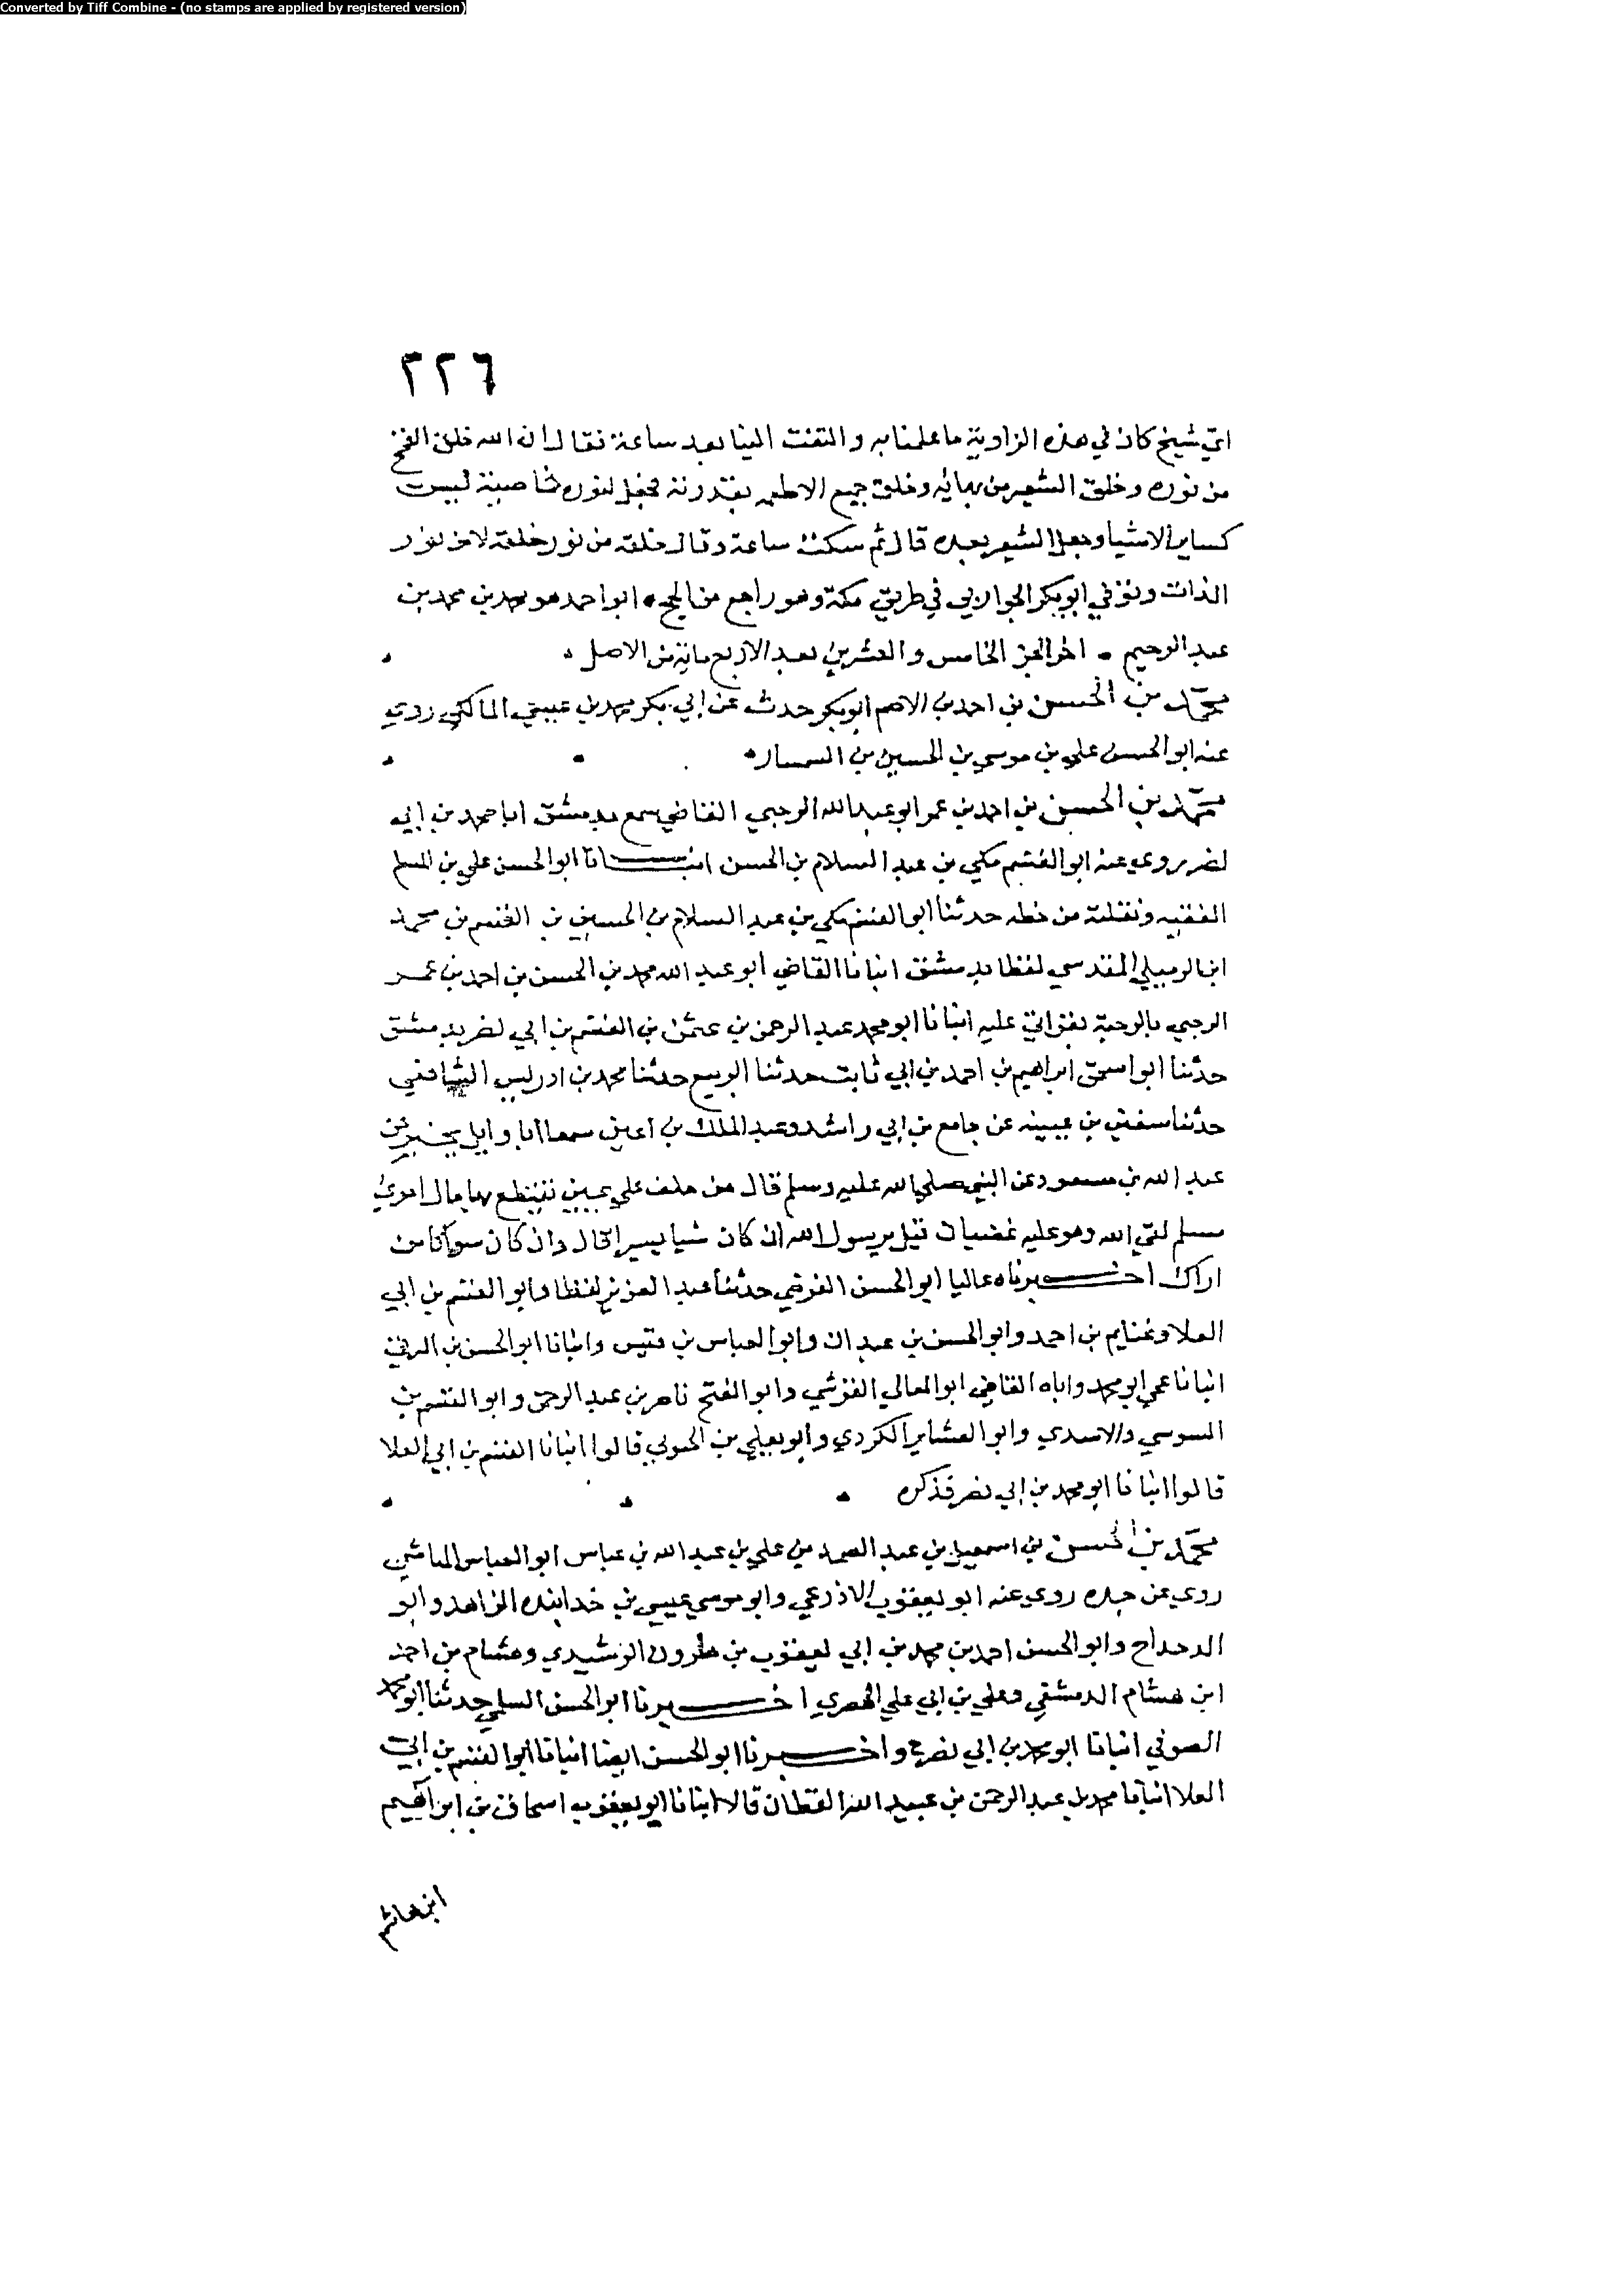 Converted by Tiff Combine - (no stamps are applied by registered version)
٢٢٦
اي شيخ كان في هذه الزاوية ما علمنا به والتفت الينا بعد ساعة فقال ان الله خلق
من نوره وخلق الشعير من بهائه وخلق جميع بقدرته فجعل لنوره خاصية ليست
كساير الاشيا وجعل الشعير بعده قال ثم سكت ساعة وقال خلقه من نور خلقه لا من نور
الذات وتوفي ابو بكر الجواربي في طريق مكة وهو راجع من الحج ابو احمد هو محمد بن محمد بن
عبد الرحيم اخر الجز الخامس والعشرين بعد الاربع ماية من الاصل
محمد بن الحسن بن احمد بن الاصم ابو بكر حدث عن ابي بكر محمد بن عيسى المالكي روى
عنه ابو الحسن علي بن موسى بن الحسين بن السمسار
محمد بن الحسن بن احمد بن عمر ابو عبد الله الرحبي القاضي سمع بدمشق ابا محمد بن ابي
نصر روى عنه ابو القسم مكي بن عبد السلام بن الحسن انبانا ابو الحسن علي بن المسلم
الفقيه ونقلته من خطه حدثنا ابو القسم مكي بن عبد السلام بن الحسين بن القسم بن محمد
ابن الرميلي المقدسي لفظا بدمشق انبانا القاضي ابو عبد الله محمد بن الحسن بن احمد بن عمر
الرحبي بالرحبة بقراتي عليه انبانا ابو محمد عبد الرحمن بن عثمن بن القسم بن ابي نصر بدمشق
حدثنا ابو اسحق ابراهيم بن احمد بن ابي ثابت حدثنا الربيع حدثنا محمد بن ادريس الشافعي
حدثنا سفين بن عيينه عن جامع بن ابي راشد وعبد الملك بن اعين سمعا ابا وايل يخبر عن
عبد الله بن مسعود عن النبي صلى الله عليه وسلم قال من حلف على يمين يقتطع بها مال امرئ
مسلم لقي الله وهو عليه غضبان قيل يرسول الله ان كان شيا يسيرا قال وان كان سواكا من
اراك اخبرناه عاليا ابو الحسن الفرضي حدثنا عبد العزيز لفظا وابو القسم بن ابي
العلا وغنايم بن احمد وابو الحسن بن عبدان وابو العباس بن قبيس وانبانا ابو الحسن بن
انبانا عمي ابو محمد واباه القاضي ابو المعالي القرشي وابو الفتح ناصر بن عبد الرحمن وابو القسم بن
السوسي والاسدي وابو العشاير الكردي وابو يعلى بن الحبوبي قالوا انبانا القسم بن ابي العلا
قالوا انبانا ابو محمد بن ابي نصر فذكره
محمد بن الحسن بن اسمعيل بن عبد الصمد بن علي بن عبد الله بن عباس ابو العباس الهاشمي
روى عن جده روى عنه ابو يعقوب الاذرعي وابو موسى عيسى بن خدابنده الزاهد وابو
الدحداح وابو الحسن احمد بن محمد بن ابي يعقوب بن هارون الرشيدي وهشام بن احمد
ابن هشام الدمشقي وعلي بن ابي علي الحصري اخبرنا ابو الحسن السلمي حدثنا ابو محمد
الصوفي انبانا ابو محمد بن ابي نصر ح واخبرنا ابو الحسن ايضا انبانا ابو القسم بن ابي
العلا انبانا محمد بن عبد الرحمن بن عبيد الله القطان قالا انبانا ابو يعقوب اسحاق بن ابراهيم
ابن هاشم